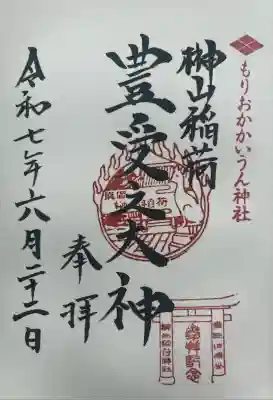 もりおかかいうん神社
榊山稲荷
豊受之大神
奉拝
令和七年六月二十二日
参拝記念